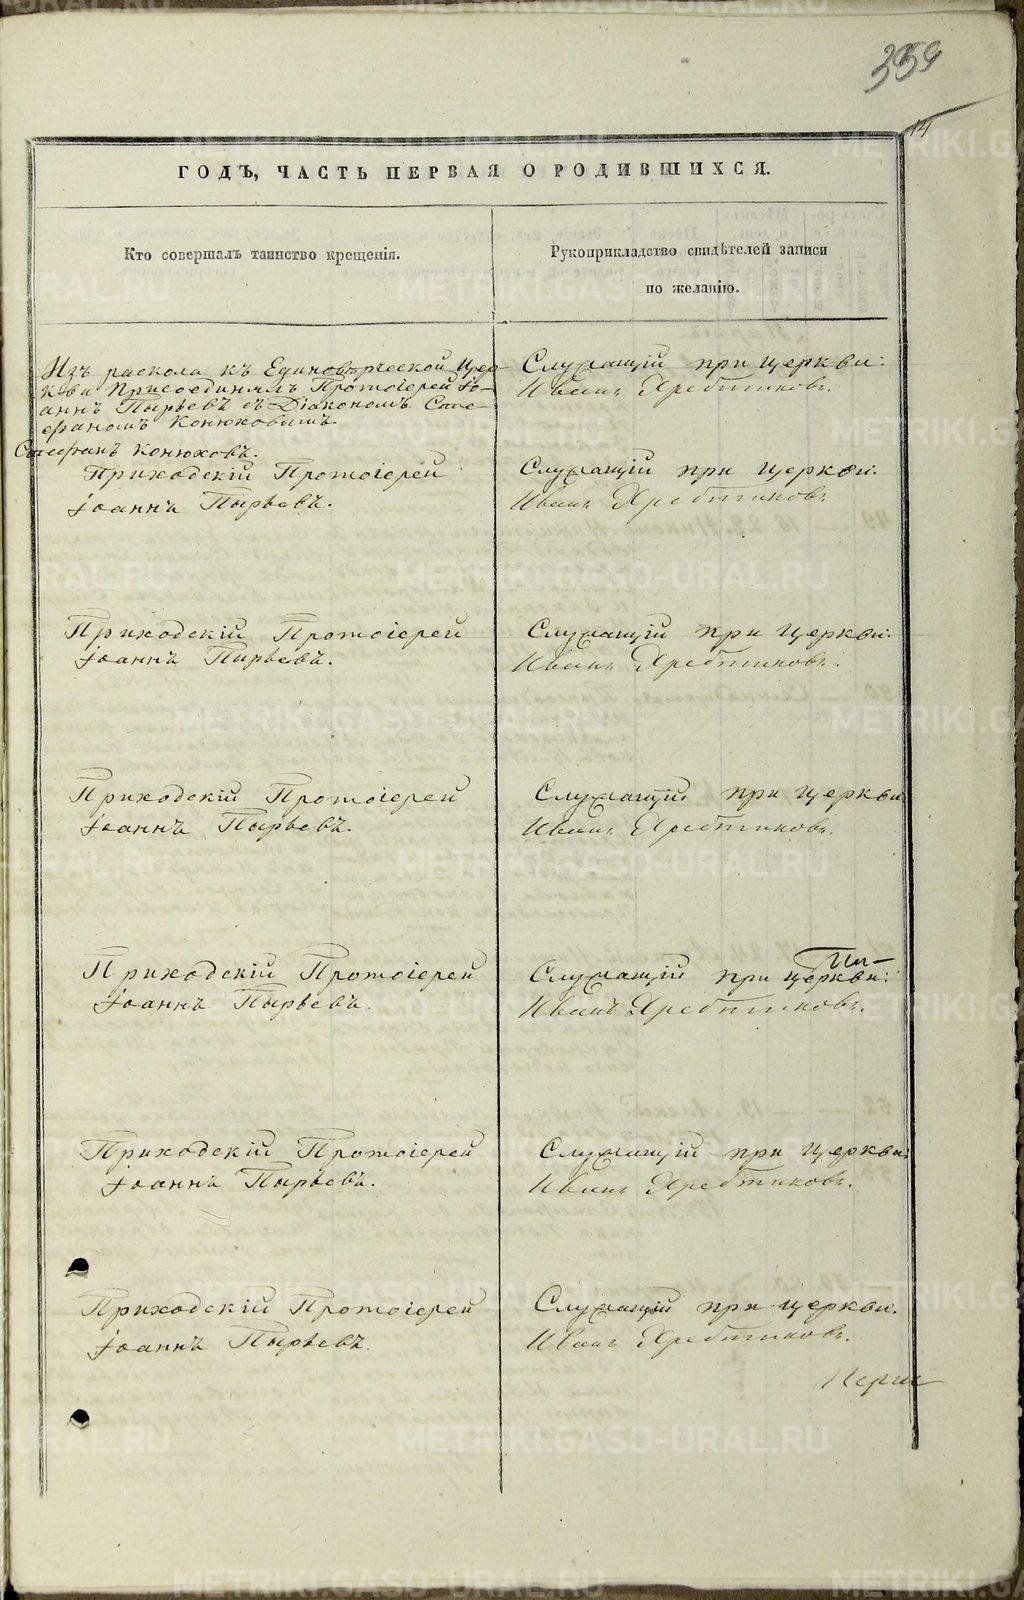 359
14
ГОДЪ, ЧАСТЬ ПЕРВАЯ О РОДИВШИХСЯ.
Кто совершалъ таинство крещенія.
Рукоприкладство свидѣтелей записи
по желанію.
Изъ раскола къ Единовѣрческой Цер-
кви Присоединялъ Протоіерей Іо-
аннъ Пырьевъ съ Діакономъ Сте-
фаномъ Конюховымъ.
Стефанъ Конюховъ.
Служащій при церкви:
Иванъ Хребтиковъ.
Приходскій Протоіерей
Іоаннъ Пырьевъ.
Служащій при церкви:
Иванъ Хребтиковъ
Приходскій Протоіерей
Іоаннъ Пырьевъ.
Служащій при церкви:
Иванъ Хребтиковъ.
Приходскій Протоіерей
Іоаннъ Пырьевъ.
Служащій при церкви
Иванъ Хребтиковъ.
Приходскій Протоіерей
Іоаннъ Пырьевъ.
Служащій при церкви:
Иванъ Хребтиковъ.
Приходскій Протоіерей
Іоаннъ Пырьевъ.
Служащій при церкви:
Иванъ Хребтиковъ.
Приходскій Протоіерей
Іоаннъ Пырьевъ.
Служащій при церкви.
Иванъ Хребтиковъ.
METRIKI.GASO-URAL.RU